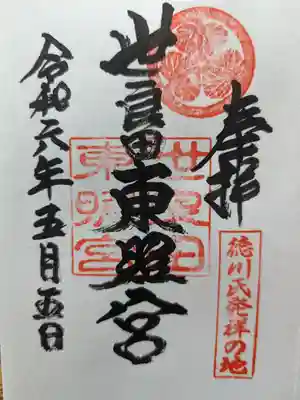 奉拝
徳川氏発祥の地
世良田東照宮
世良田
東照宮
令和六年五月五日